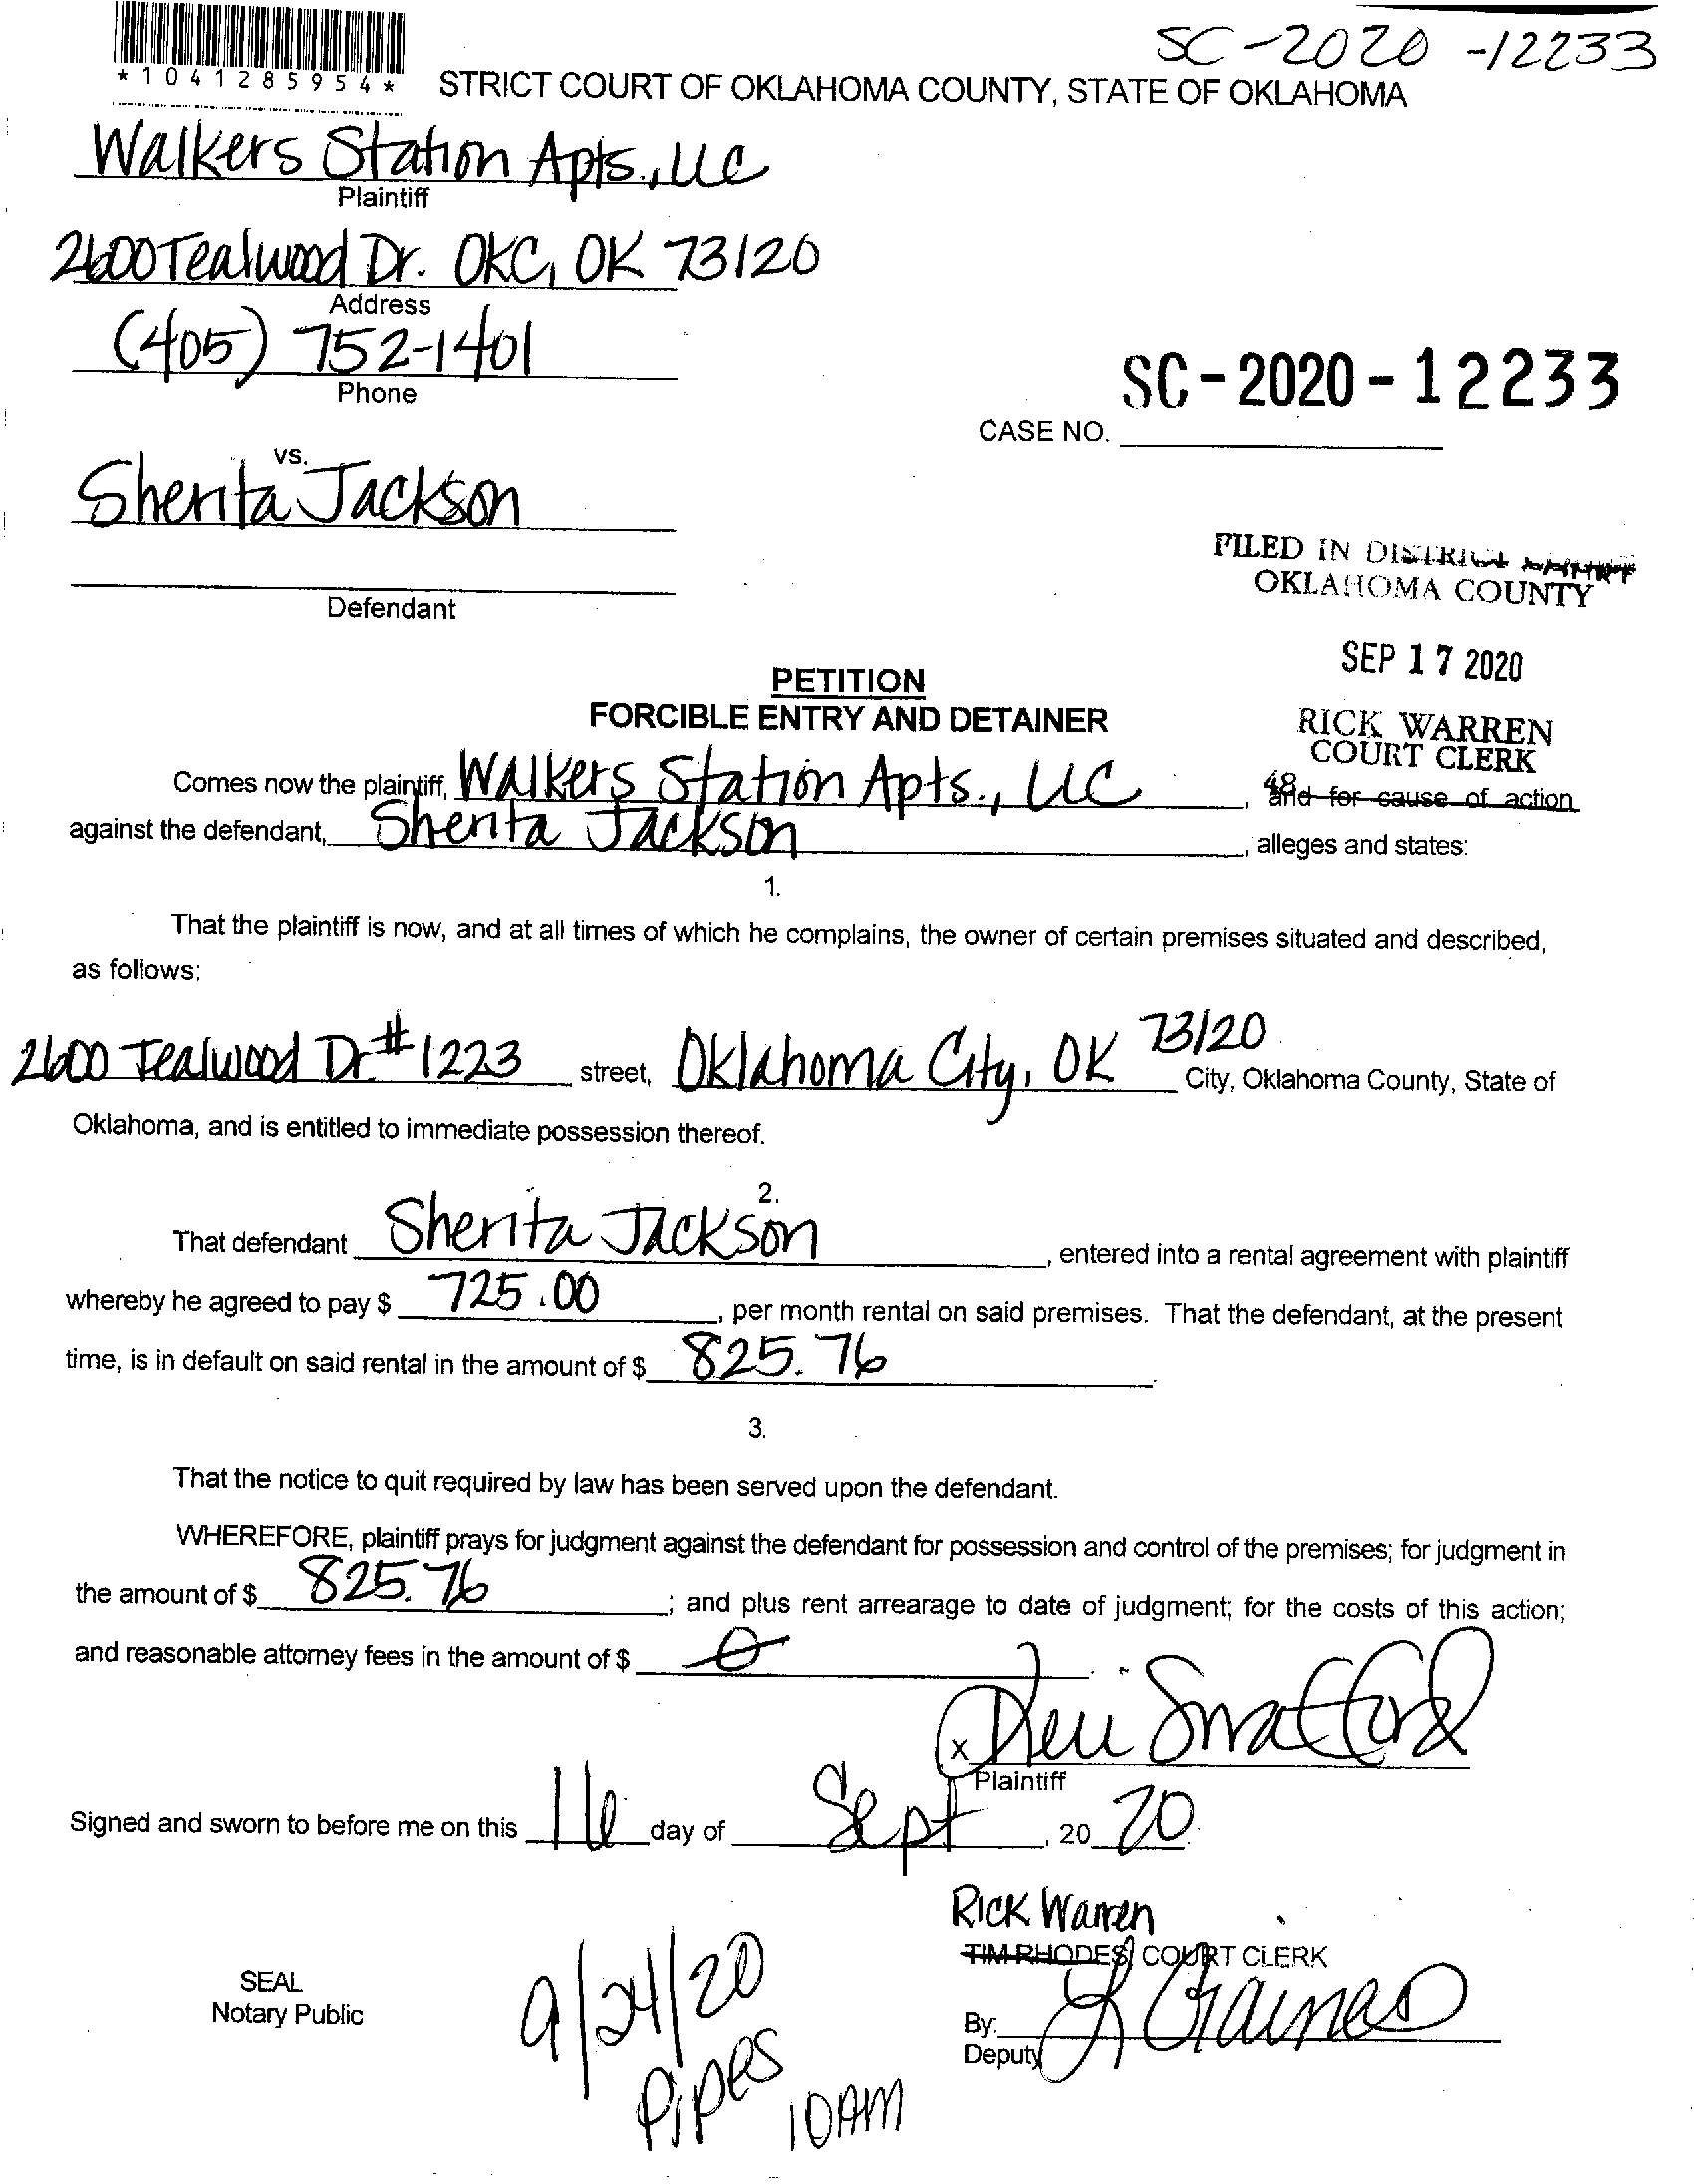 SC-2020-12233
*1041285954*
STRICT COURT OF OKLAHOMA COUNTY, STATE OF OKLAHOMA
Walkers Station Apts., LLC
Plaintiff
2600 Tealwood Dr. OKC, OK 73120
Address
(405) 752-1401
Phone
SC-2020-12233
CASE NO.
vs.
Sherita Jackson
FILED IN DISTRICT COURT
OKLAHOMA COUNTY
Defendant
SEP 17 2020
PETITION
FORCIBLE ENTRY AND DETAINER
RICK WARREN
COURT CLERK
48
Comes now the plaintiff, Walkers Station Apts., LLC, and for cause of action
against the defendant, Sherita Jackson, alleges and states:
1.
That the plaintiff is now, and at all times of which he complains, the owner of certain premises situated and described,
as follows:
2600 Tealwood Dr. #1223 street, Oklahoma City, OK 73120 City, Oklahoma County, State of
Oklahoma, and is entitled to immediate possession thereof.
2.
That defendant Sherita Jackson, entered into a rental agreement with plaintiff
whereby he agreed to pay $ 725.00, per month rental on said premises. That the defendant, at the present
time, is in default on said rental in the amount of $ 825.76.
3.
That the notice to quit required by law has been served upon the defendant.
WHEREFORE, plaintiff prays for judgment against the defendant for possession and control of the premises; for judgment in
the amount of $ 825.76; and plus rent arrearage to date of judgment; for the costs of this action;
and reasonable attorney fees in the amount of $ 0.
X
Plaintiff
Signed and sworn to before me on this 16 day of Sept, 20 20.
Rick Warren
TIM RHODES, COURT CLERK
SEAL
Notary Public
9/24/20
Pipes
10AM
By: L Gaines
Deputy